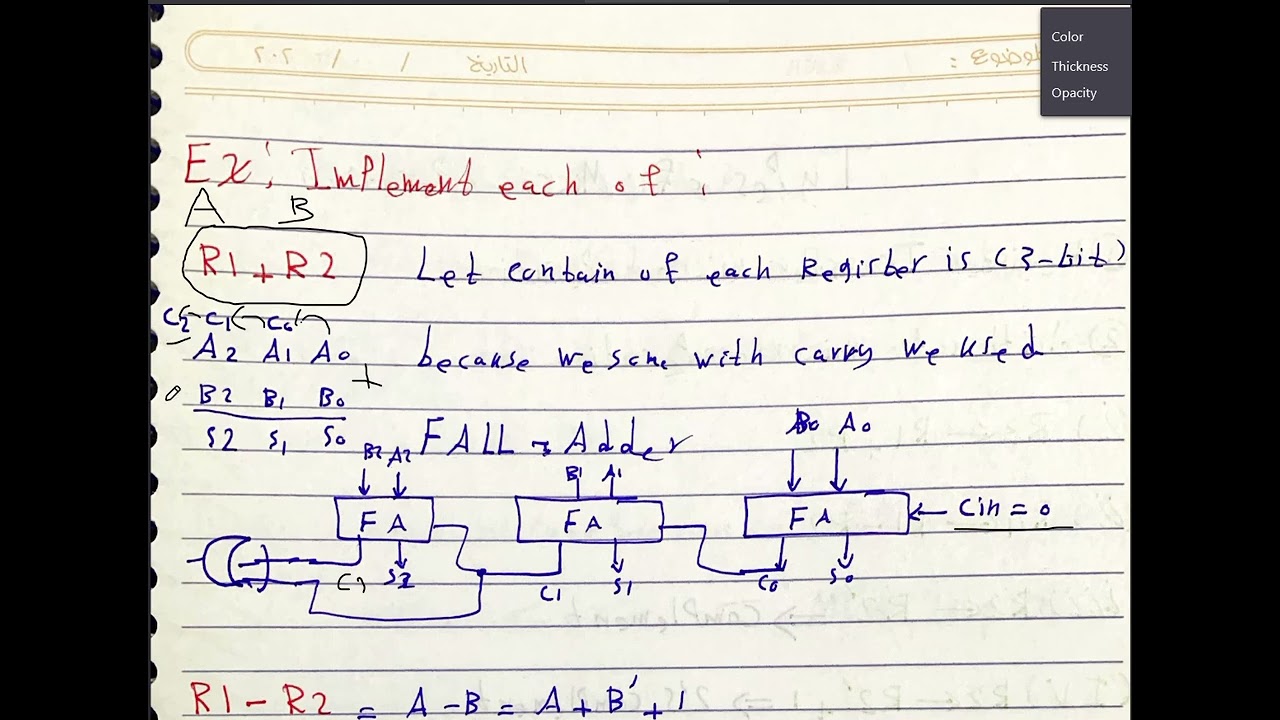 الموضوع :
التاريخ / / ٢٠٢
Color
Thickness
Opacity
Ex: Implement each of :
A B
R1 + R2 Let contain of each Register is (3-bit)
C2 C1 C0
A2 A1 A0 + because we some with carry we used
0 B2 B1 B0
S2 S1 S0 FALL → Adder
B2 A2 B1 A1 B0 A0
FA FA FA Cin = 0
S2 C1 S1 C0 S0
R1 - R2 = A - B = A + B' + 1